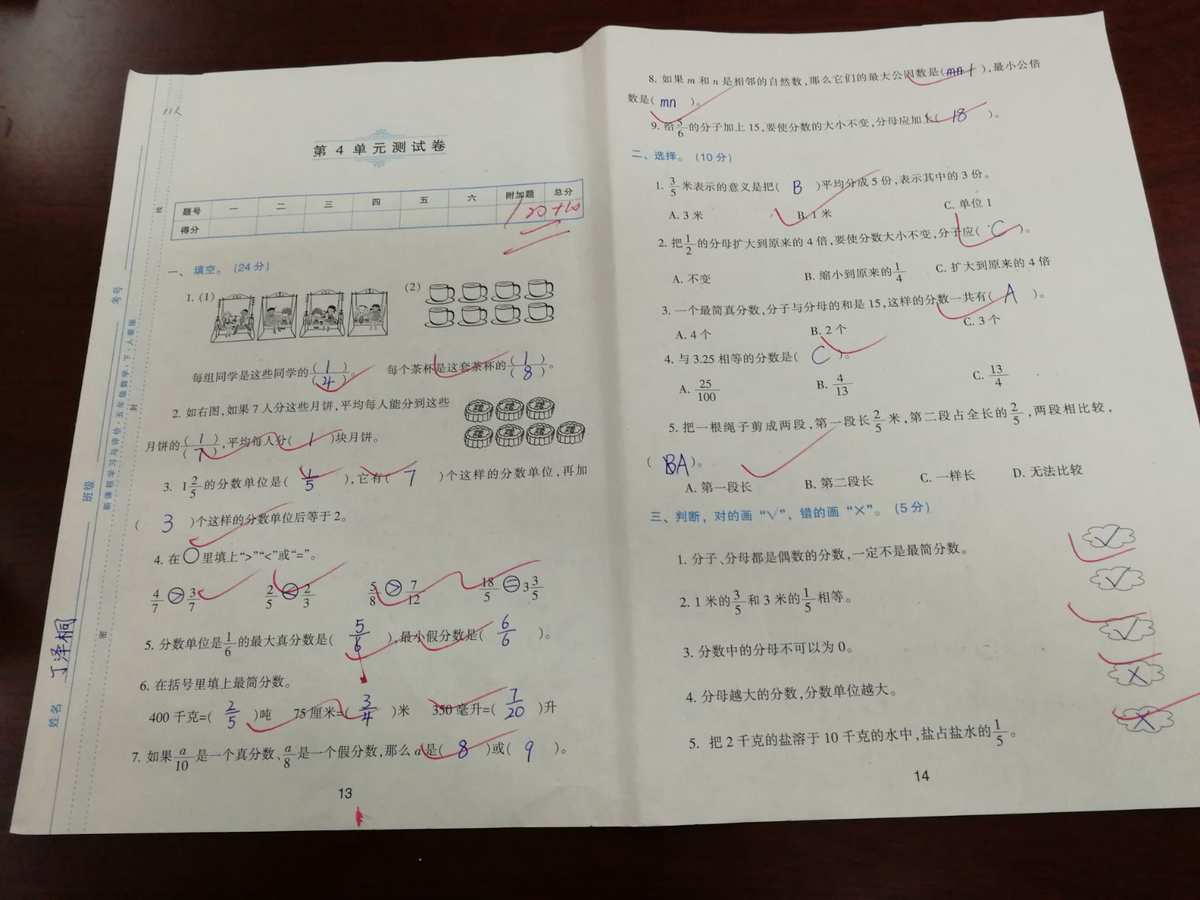 第 4 单元测试卷
题号 一 二 三 四 五 六 附加题 总分
得分 120+10
一、填空。(24分)
1. (1) (2)
每组同学是这些同学的(1)/(4)。 每个茶杯是这套茶杯的(1)/(8)。
2. 如右图,如果 7 人分这些月饼,平均每人能分到这些
月饼的(1)/(7),平均每人分( 1 )块月饼。
3. 1 2/5 的分数单位是( 1/5 ),它有( 7 )个这样的分数单位,再加
( 3 )个这样的分数单位后等于 2。
4. 在○里填上“>”“<”或“=”。
4/7 > 3/7 2/5 < 2/3 5/8 > 7/12 18/5 = 3 3/5
5. 分数单位是 1/6 的最大真分数是( 5/6 ),最小假分数是( 6/6 )。
6. 在括号里填上最简分数。
400 千克=( 2/5 )吨 75 厘米=( 3/4 )米 350 毫升=( 7/20 )升
7. 如果 a/10 是一个真分数、a/8 是一个假分数,那么 a 是( 8 )或( 9 )。
13
8. 如果 m 和 n 是相邻的自然数,那么它们的最大公因数是( 1 ),最小公倍
数是( mn )。
9. 给 5/6 的分子加上 15,要使分数的大小不变,分母应加上( 18 )。
二、选择。(10分)
1. 3/5 米表示的意义是把( B )平均分成 5 份,表示其中的 3 份。
A. 3 米 B. 1 米 C. 单位 1
2. 把 1/2 的分母扩大到原来的 4 倍,要使分数大小不变,分子应( C )。
A. 不变 B. 缩小到原来的 1/4 C. 扩大到原来的 4 倍
3. 一个最简真分数,分子与分母的和是 15,这样的分数一共有( A )。
A. 4 个 B. 2 个 C. 3 个
4. 与 3.25 相等的分数是( C )。
A. 25/100 B. 4/13 C. 13/4
5. 把一根绳子剪成两段,第一段长 2/5 米,第二段占全长的 2/5,两段相比较,
( BA )。
A. 第一段长 B. 第二段长 C. 一样长 D. 无法比较
三、判断,对的画“√”,错的画“×”。(5分)
1. 分子、分母都是偶数的分数,一定不是最简分数。 √
2. 1 米的 3/5 和 3 米的 1/5 相等。 √
3. 分数中的分母不可以为 0。 √
4. 分母越大的分数,分数单位越大。 ×
5. 把 2 千克的盐溶于 10 千克的水中,盐占盐水的 1/5。 ×
14
姓名 丁泽桐 班级 考号
新课程学习与评价·五年级数学·下·人教版
密 封 线